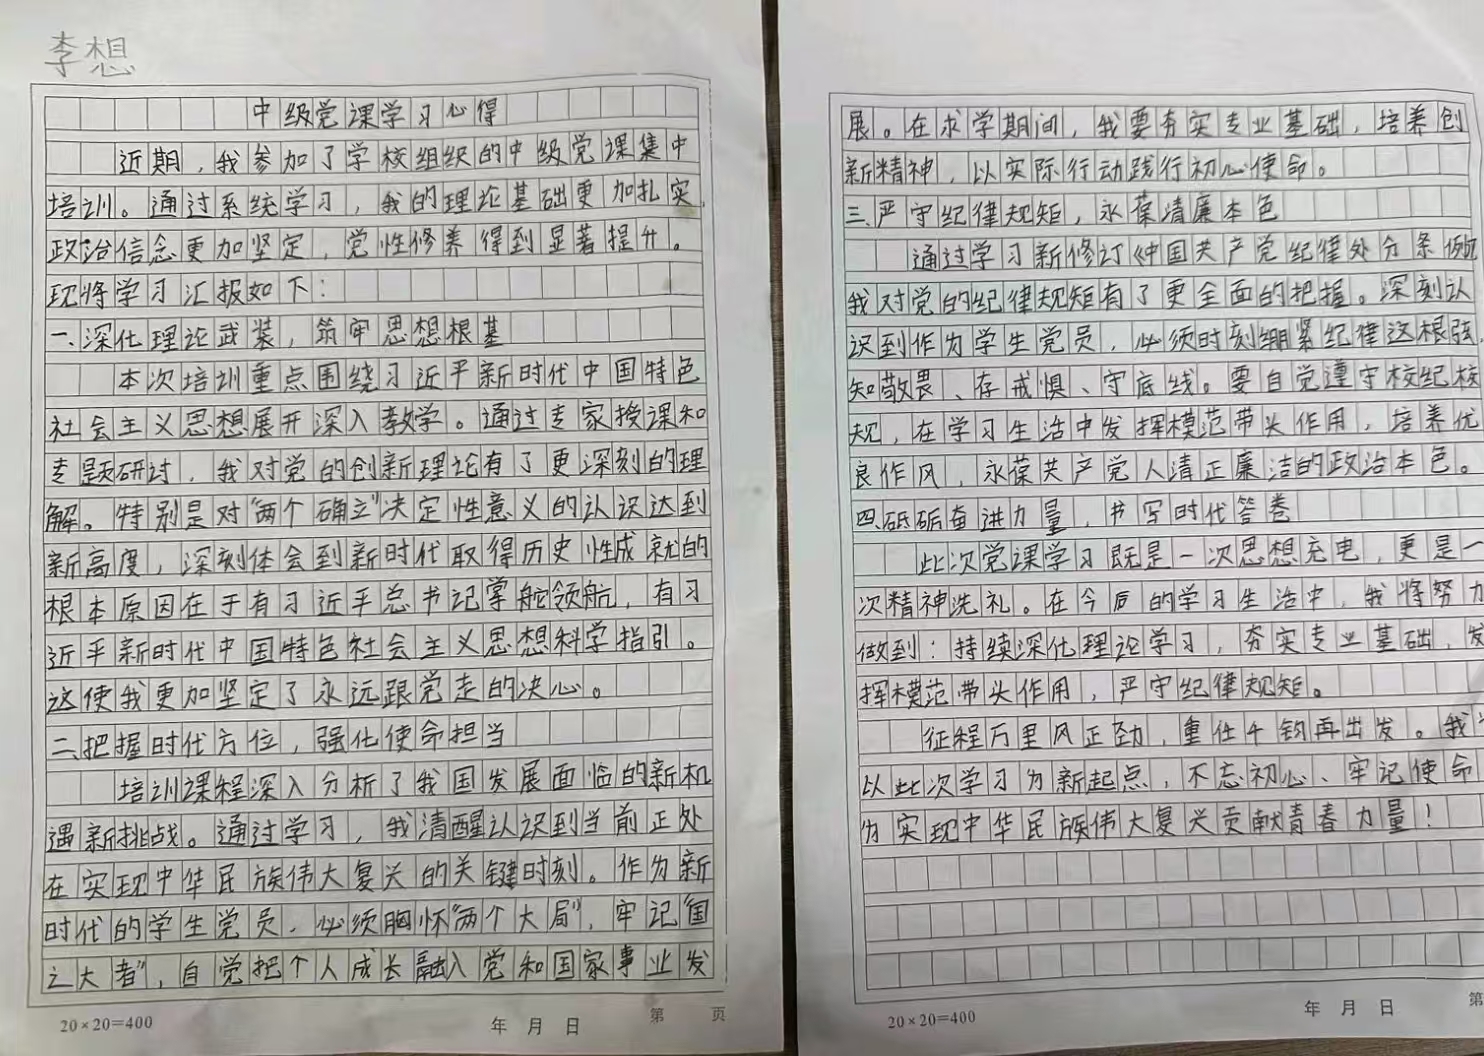 李想
中级党课学习心得
近期，我参加了学校组织的中级党课集中
培训。通过系统学习，我的理论基础更加扎实，
政治信念更加坚定，党性修养得到显著提升。
现将学习汇报如下：
一、深化理论武装，筑牢思想根基
本次培训重点围绕习近平新时代中国特色
社会主义思想展开深入教学。通过专家授课和
专题研讨，我对党的创新理论有了更深刻的理
解。特别是对“两个确立”决定性意义的认识达到
新高度，深刻体会到新时代取得历史性成就的
根本原因在于有习近平总书记掌舵领航，有习
近平新时代中国特色社会主义思想科学指引。
这使我更加坚定了永远跟党走的决心。
二、把握时代方位，强化使命担当
培训课程深入分析了我国发展面临的新机
遇新挑战。通过学习，我清醒认识到当前正处
在实现中华民族伟大复兴的关键时刻。作为新
时代的学生党员，必须胸怀“两个大局”，牢记“国
之大者”，自觉把个人成长融入党和国家事业发
20×20=400
年 月 日
第 页
展。在求学期间，我要夯实专业基础，培养创
新精神，以实际行动践行初心使命。
三、严守纪律规矩，永葆清廉本色
通过学习新修订《中国共产党纪律处分条例》
我对党的纪律规矩有了更全面的把握。深刻认
识到作为学生党员，必须时刻绷紧纪律这根弦，
知敬畏、存戒惧、守底线。要自觉遵守校纪校
规，在学习生活中发挥模范带头作用，培养优
良作风，永葆共产党人清正廉洁的政治本色。
四、砥砺奋进力量，书写时代答卷
此次党课学习既是一次思想充电，更是一
次精神洗礼。在今后的学习生活中，我将努力
做到：持续深化理论学习，夯实专业基础，发
挥模范带头作用，严守纪律规矩。
征程万里风正劲，重任千钧再出发。我
以此次学习为新起点，不忘初心、牢记使命
为实现中华民族伟大复兴贡献青春力量！
20×20=400
年 月 日
第